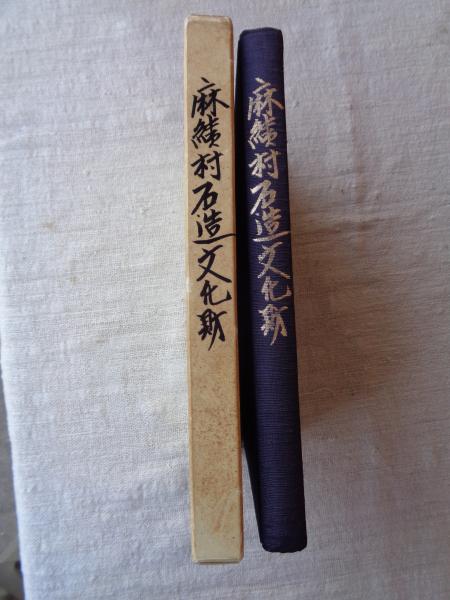 麻績村石造文化財
麻績村石造文化財